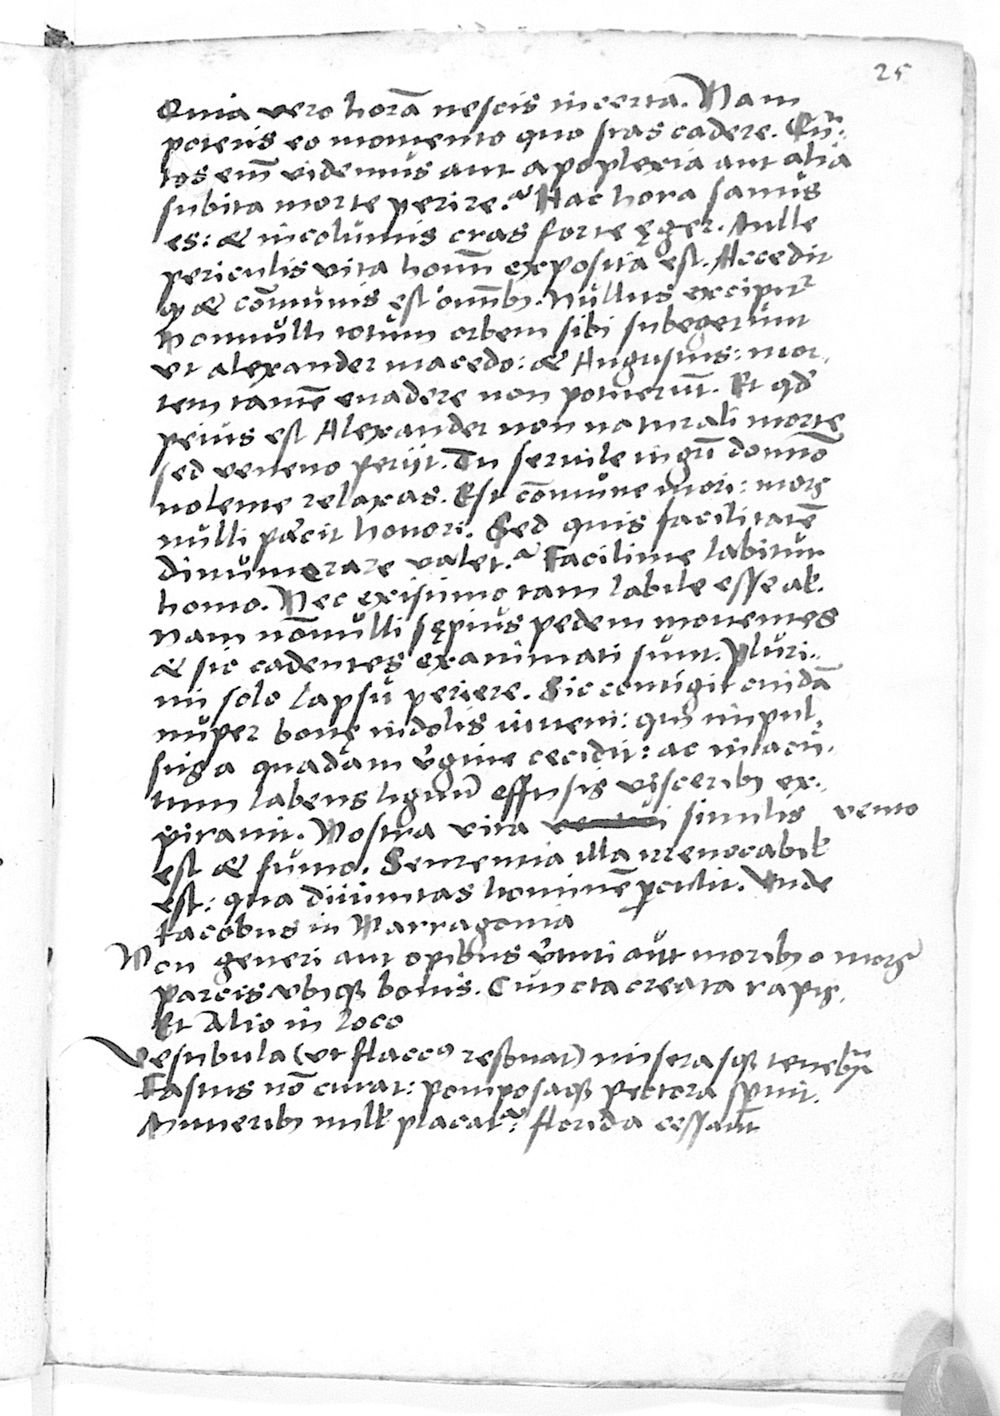 25
Quia vero horã nescis incerta. Nam
poteris eo momento quo stas cadere. Cũ-
tos em̃ videmus aut apoplexia aut alia
subita morte perire. Hac hora sanus
es: & incolumis cras forte ęger. Mille
periculis vita homĩ exposita est. Accedit
ꝙ & cõmunis est omĩbꝰ. Nullus excipitr
Nonnulli totum orbem sibi subegerunt
ut alexander macedo: & Augustus: mor-
tem tamẽ evadere non potuerũt. Et qđ
peius est Alexander non naturali morte
sed veneno perijt. Tu servile ingũ domĩo
nolente relaxas. Est cõmune mori: mors
nulli parcit honori. Sed quis facilitatẽ
dinumerare valet. Facilime labitur
homo. Nec existimo tam labile esse al.
Nam nõnulli sępius pedem moventes
& sic cadentes exanimati sunt. Pluri-
mi solo lapsu periere. Sic contigit cuidã
nuper bonę indolis iuveni: qui impul-
sus a quadam virgine cecidit: ac in acu-
tum labens lignũ effusis visceribꝰ ex-
piravit. Nostra vita similis vento
est & fumo. Sententia illa irrevocabil
est: qua divinitas hominẽ perculit. Unde
Iacobus in Warragonia
Non generi aut opibus virtuti aut moribꝰ o mors
parcis ubiqꝫ bonis. Cuncta creata rapis.
Et Alio in loco
Vestibula (ut flaccꝰ resonat) miserasqꝫ tenebris
Fastus nõ curat: pomposaqꝫ pectora spernit.
Muneribꝰ null placatr: florida cessant